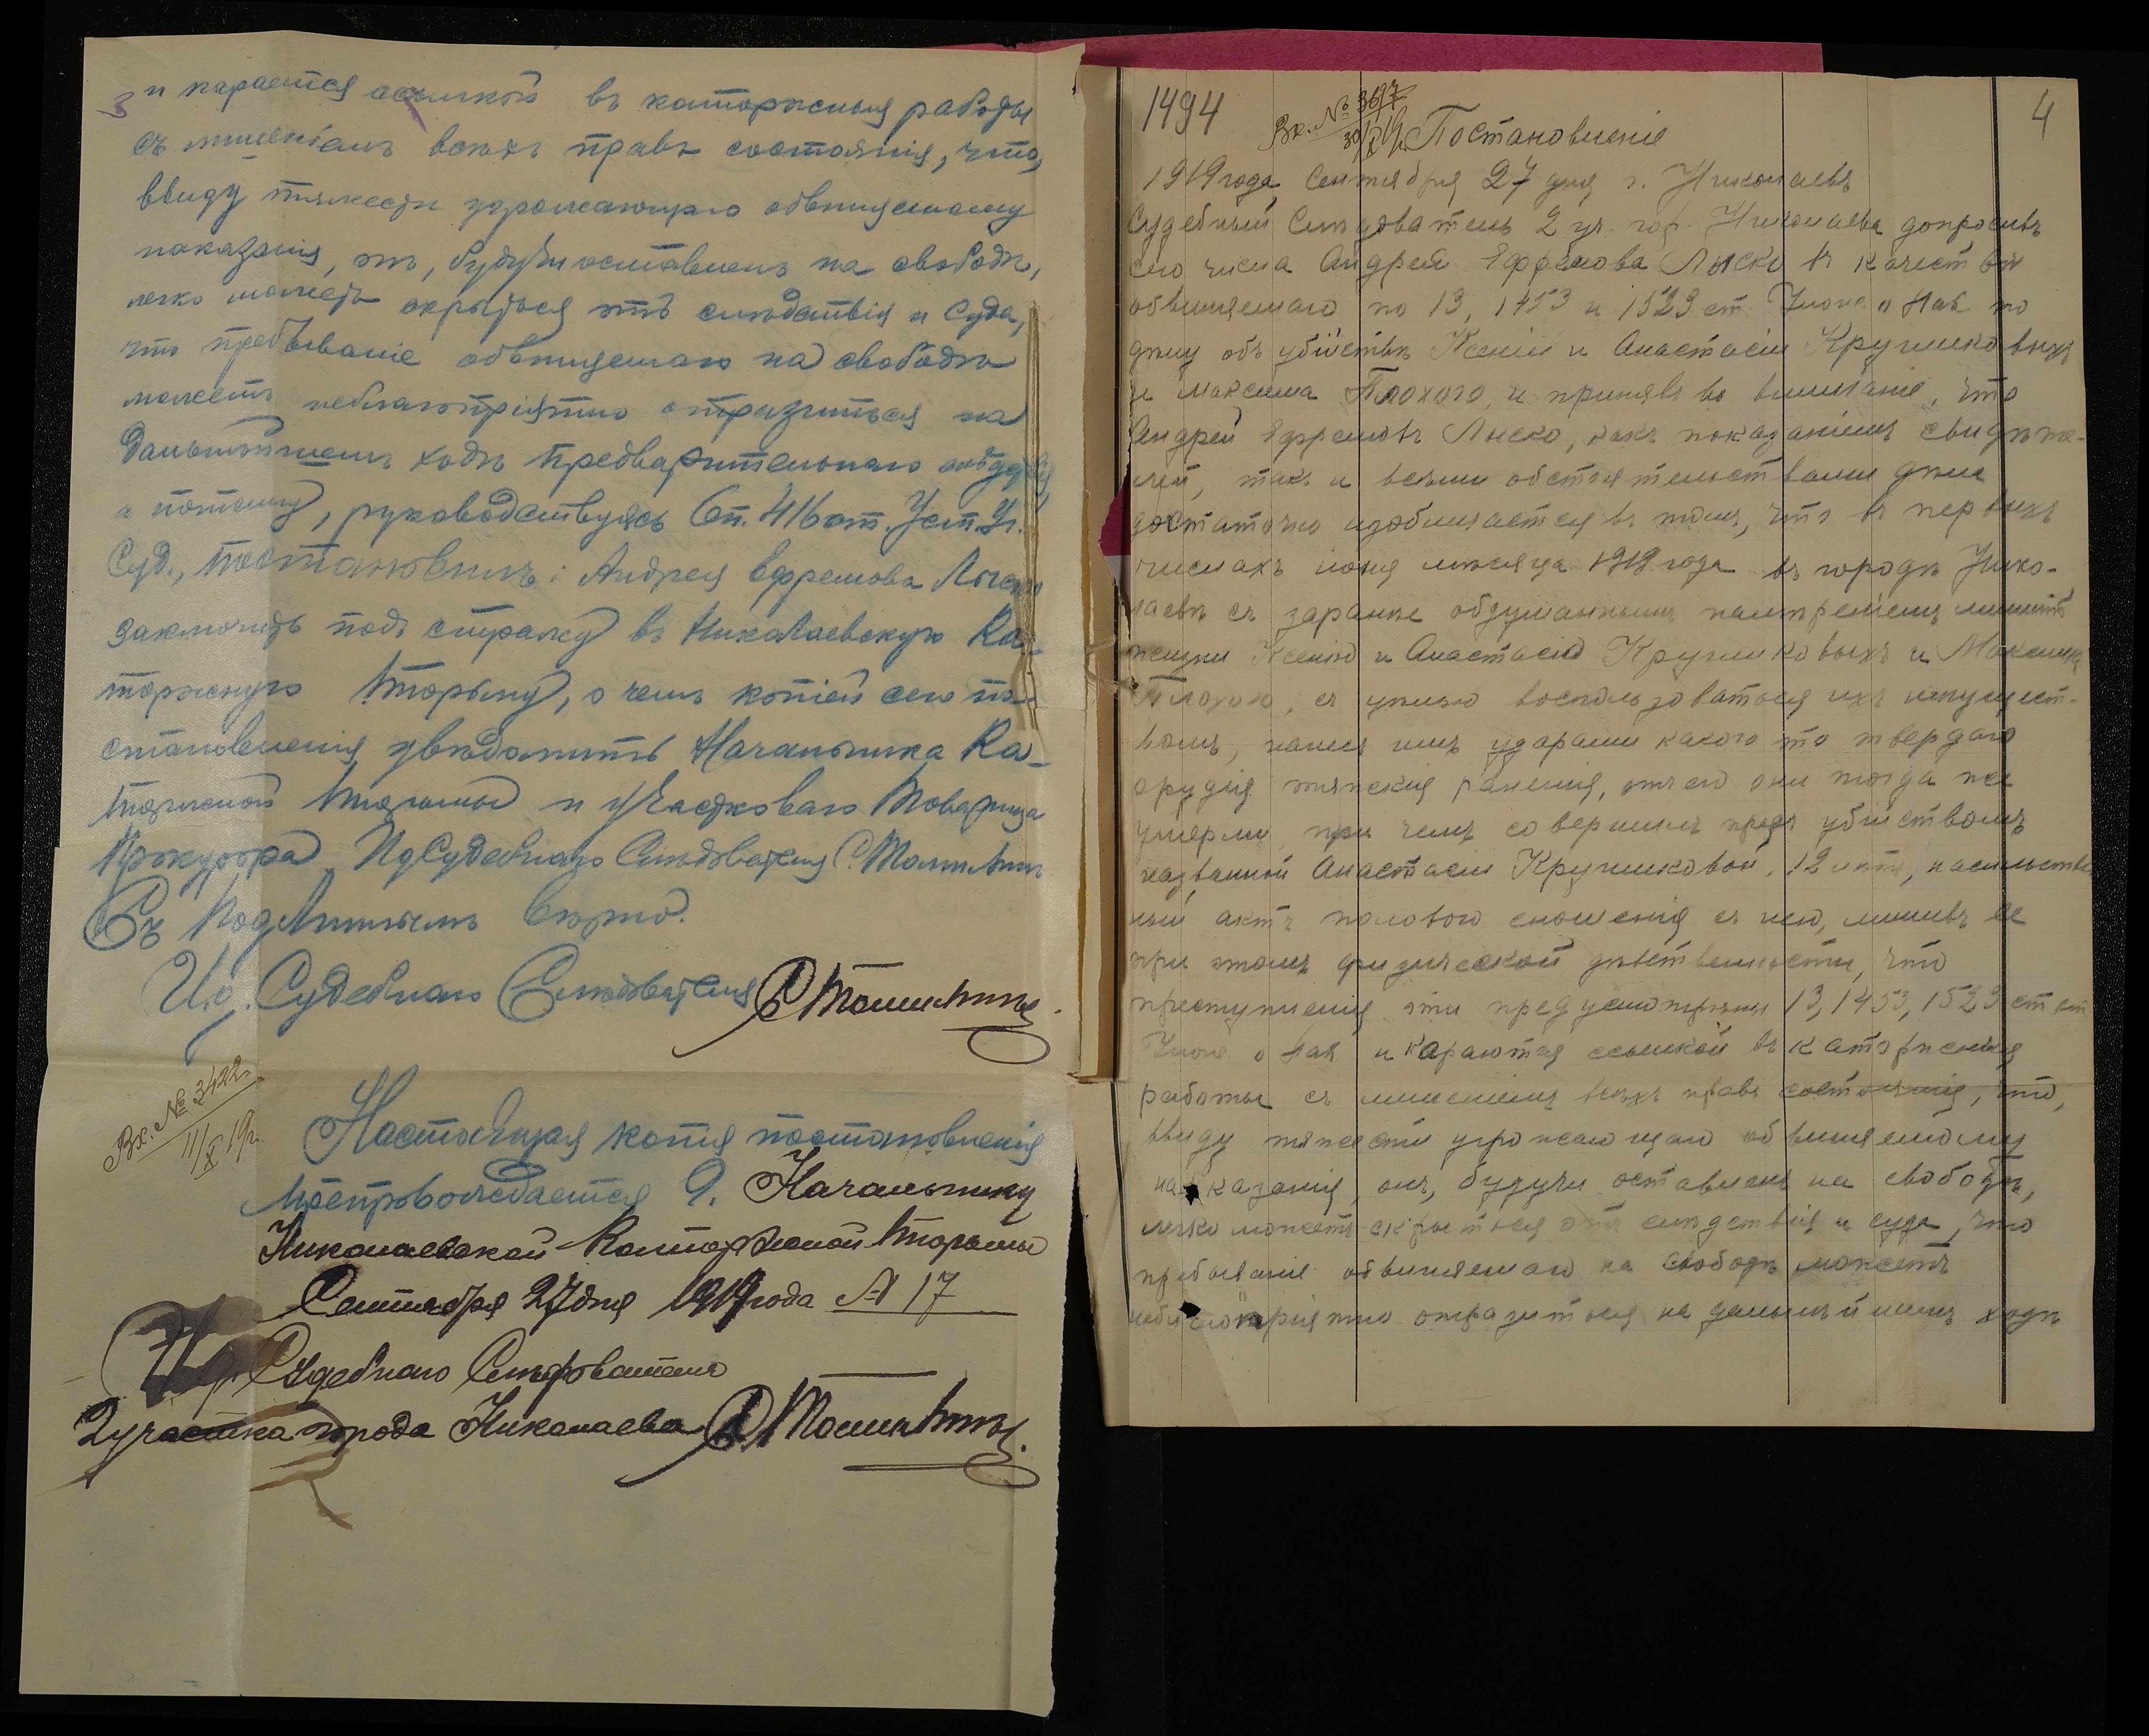 и карается ссылкой въ каторжныя работы
съ лишеніемъ всѣхъ правъ состоянія, что,
ввиду тяжести угрожающаго обвиняемому
наказанія, онъ, будучи оставленъ на свободѣ,
легко можетъ скрыться отъ слѣдствія и суда,
что пребываніе обвиняемаго на свободѣ
можетъ неблагопріятно отразиться на
дальнѣйшемъ ходѣ предварительнаго слѣдствія,
а потому, руководствуясь 6 п. 416 ст. Уст. Уг.
Суд., постановилъ: Андрея Ефремова Лыско
заключить подъ стражу въ Николаевскую Ка-
торжную тюрьму, о чемъ копіей сего по-
становленія увѣдомить Начальника Ка-
торжной тюрьмы и участковаго Товарища
Прокурора. И д Судебнаго Слѣдователя
Съ подлиннымъ вѣрно.
И. д. Судебнаго Слѣдователя
Вх. № 3422
11/X 19г.
Настоящая копія постановленія
препровождается Г. Начальнику
Николаевской Каторжной тюрьмы
Сентября 27 дня 1919 года № 17
И д. Судебнаго Слѣдователя
2 участка города Николаева
1494
4
Вх. № 3697
30/X 19г.
Постановленіе
1919 года Сентября 27 дня г. Николаевъ
Судебный Слѣдователь 2 уч. гор. Николаева допросивъ
сего числа Андрея Ефремова Лыско въ качествѣ
обвиняемаго по 13, 1453 и 1523 ст. Улож. о Нак. по
дѣлу объ убійствѣ Ксеніи и Анастасіи Кручинковыхъ
и Максима Плохого, и принявъ во вниманіе, что
Андрей Ефремовъ Лыско, какъ показаніемъ свидѣте-
лей, такъ и всѣми обстоятельствами дѣла
достаточно изобличается въ томъ, что въ первыхъ
числахъ іюня мѣсяца 1919 года въ городѣ Нико-
лаевѣ съ заранѣе обдуманнымъ намѣреніемъ лишить
жизни Ксенію и Анастасію Кручинковыхъ и Максима
Плохого, съ цѣлью воспользоваться ихъ имущест-
вомъ, нанесъ имъ ударами какого то твердаго
орудія тяжкія раненія, отчего они тогда же
умерли, при чемъ совершилъ предъ убійствомъ
названной Анастасіи Кручинковой, 12 лѣтъ, насильствен
ный актъ полового сношенія съ нею, лишивъ ее
при этомъ физической дѣвственности, что
преступленія эти предусмотрѣны 13, 1453, 1523 ст ст
Улож. о Нак и караются ссылкой въ каторжныя
работы съ лишеніемъ всѣхъ правъ состоянія, что,
ввиду тяжести угрожающаго обвиняемому
наказанія, онъ, будучи оставленъ на свободѣ,
легко можетъ скрыться отъ слѣдствія и суда, что
пребываніе обвиняемаго на свободѣ можетъ
неблагопріятно отразиться на дальнѣйшемъ ходѣ